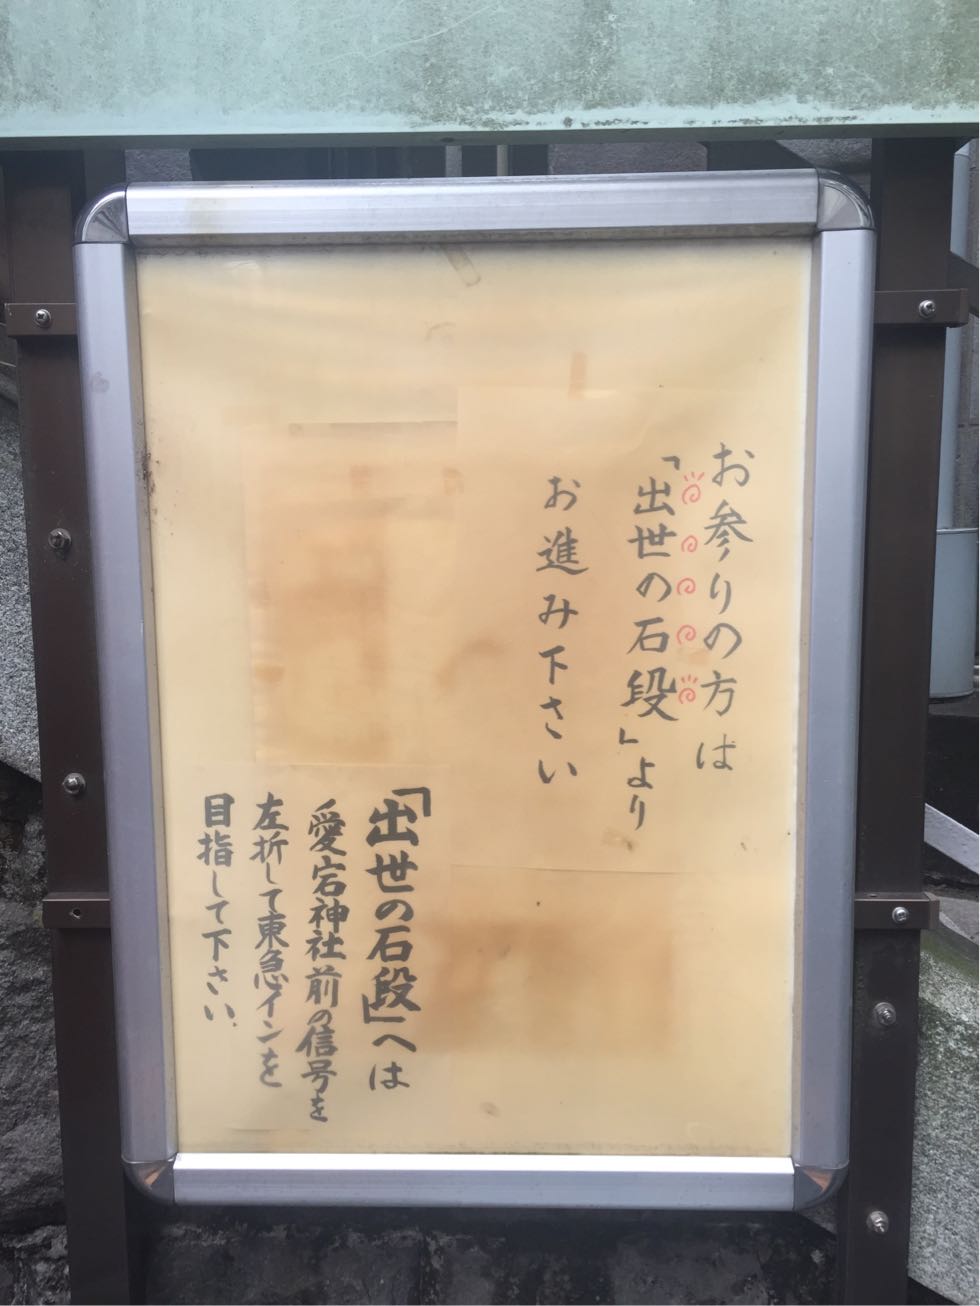 お参りの方は
「出世の石段」より
お進み下さい
「出世の石段」へは
愛宕神社前の信号を
左折して東急インを
目指して下さい.